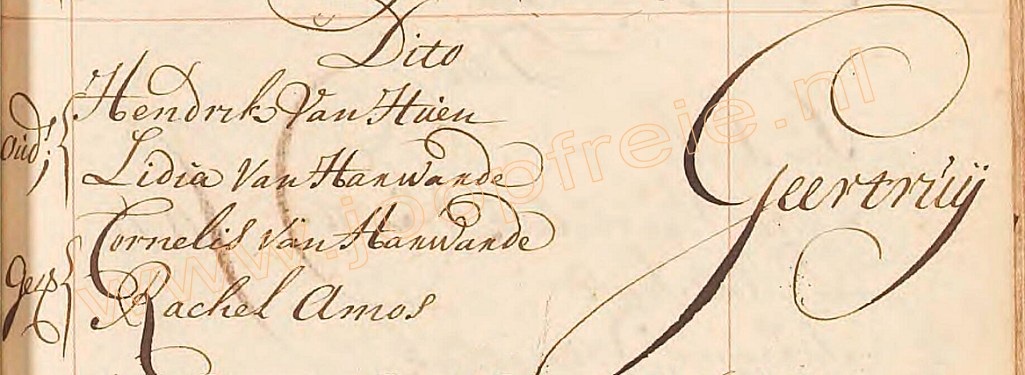 Dito
Oud.! Hendrik Van Hüen
Lidia Van Hanwande
Cornelis Van Hanwande
Get Rachel Amos
Geertruÿ
www.joopofreie.nl